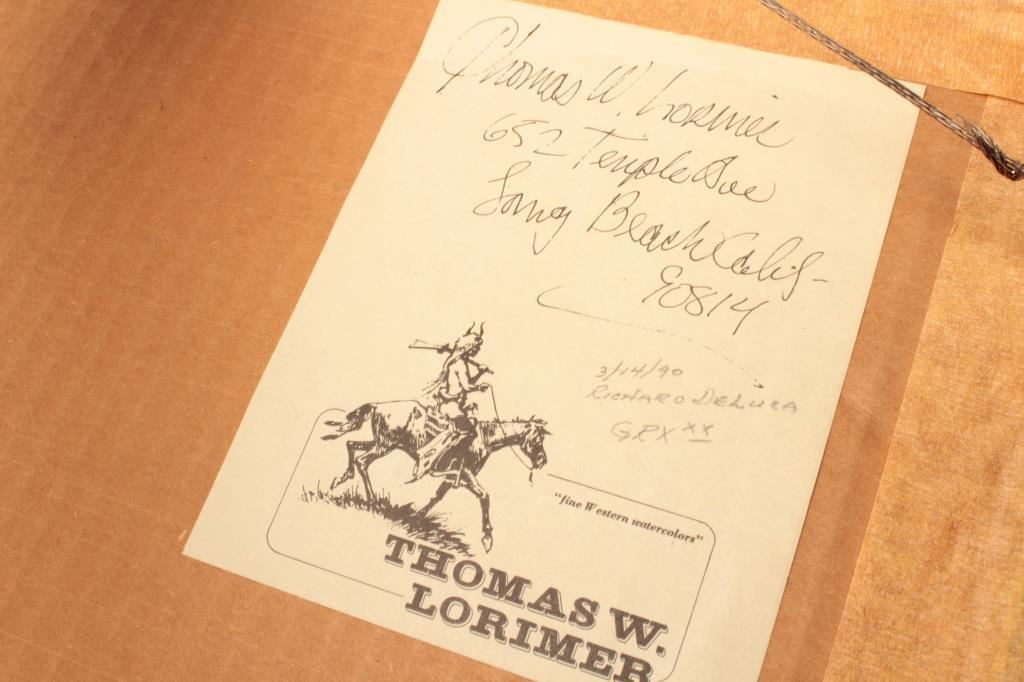 Thomas W. Lorimer
652 Temple Ave
Long Beach Calif-
90814
3/14/90
RICHARD DELUCA
GPX XX
"fine Western watercolors"
THOMAS W.
LORIMER